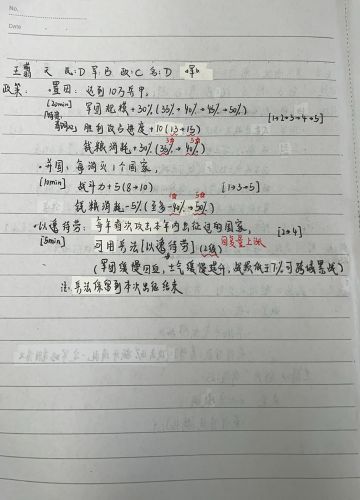 No.
Date
王翦 文 民:D 军:B 政:C 名:D
政策: ·置国: 达到10万兵甲,
[20min] 军团规模+30%(35%→40%→45%→50%) [1→2→3→4→5]
胜利攻占进度+10(13→15)
钱粮消耗+30%(35%→40%)
·并国: 每消灭1个国家,
[10min] 战斗力+5(8→10) [1→3→5]
钱粮消耗-5%(至多-40%→50%)
·以逸待劳: 每年首次攻击本年内出征过的国家, [2→4]
[5min] 可用兵法[以逸待劳](2级) 回复量上涨
(军团缓慢回血, 士气缓慢提升, 战数低于7%可跨域要战)
注: 兵法保留到本次出征结束